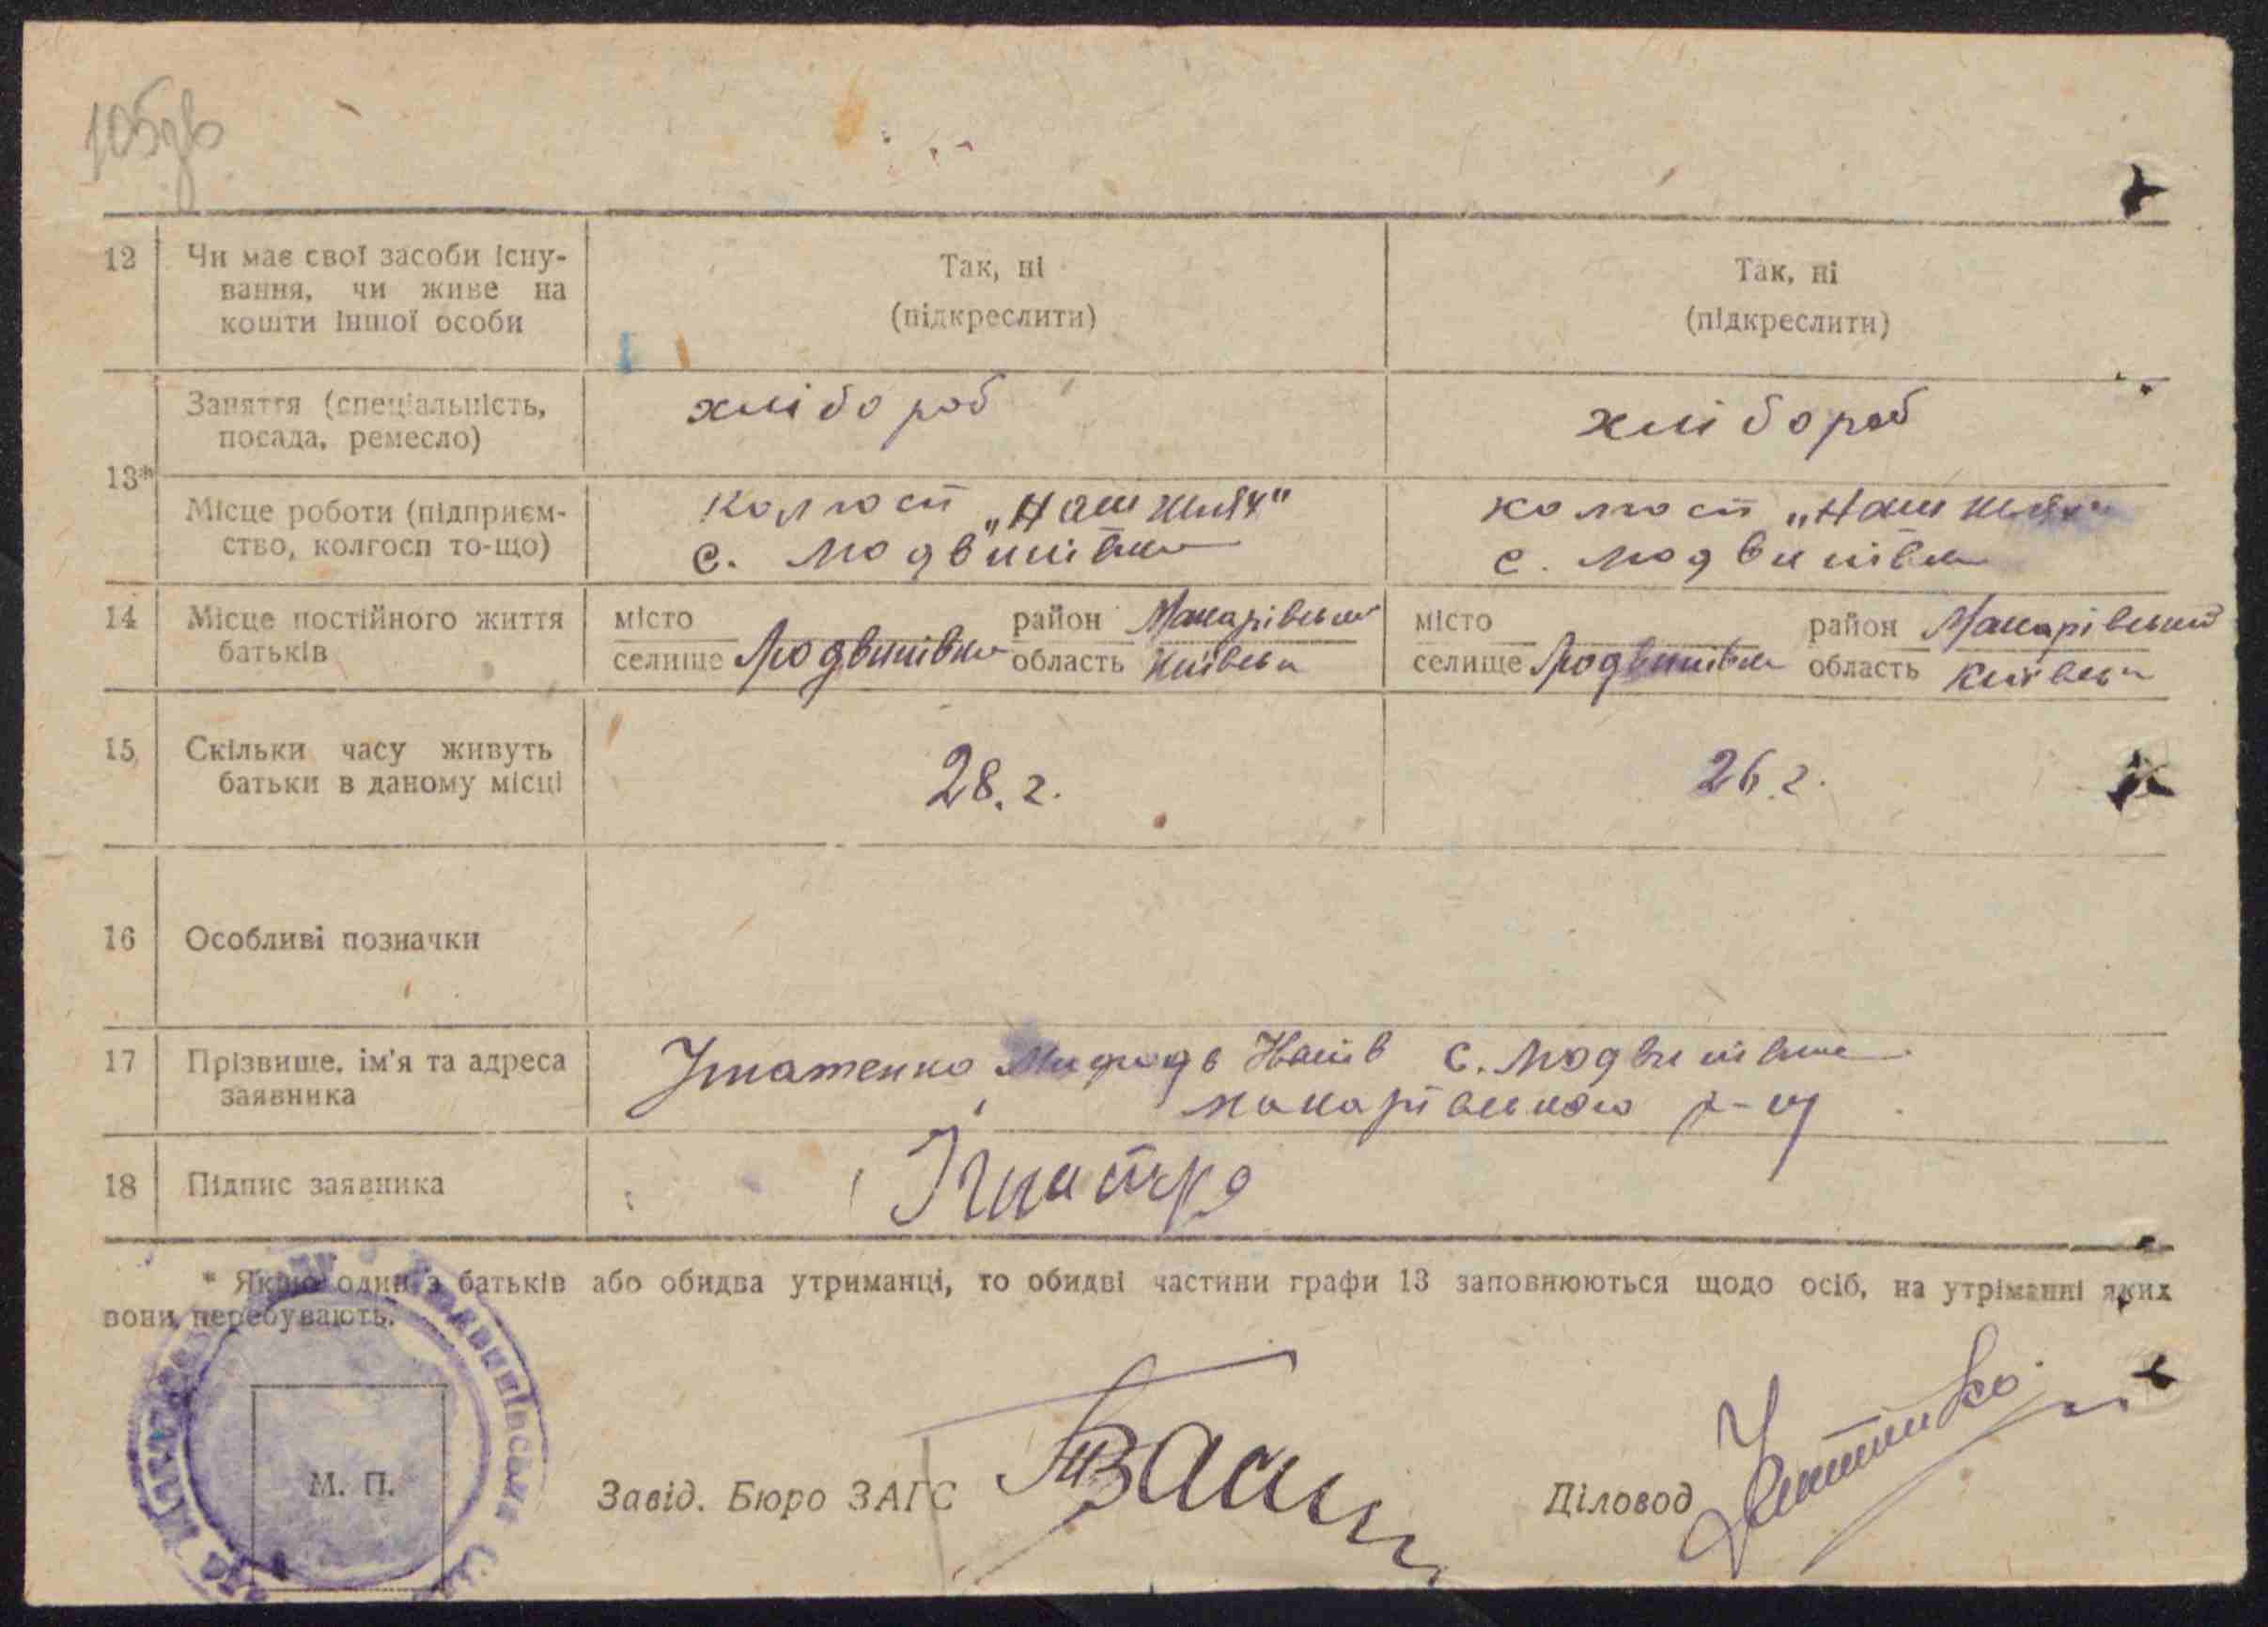 105зв
12 Чи має свої засоби існу-
вання, чи живе на
кошти іншої особи
Так, ні
(підкреслити)
Так, ні
(підкреслити)
13*
Заняття (спеціальність,
посада, ремесло)
хлібороб
хлібороб
Місце роботи (підприєм-
ство, колгосп то-що)
Колгосп „Наш шлях"
с. Людвинівка
колгосп „Наш шлях"
с. Людвинівка
14 Місце постійного життя
батьків
місто
селище Людвинівка
район Макарівський
область Київськ
місто
селище Людвинівка
район Макарівський
область Київськ
15 Скільки часу живуть
батьки в даному місці
28. г.
26. г.
16 Особливі позначки
17 Прізвище, ім'я та адреса
заявника
Ігнатенко с. Людвинівка
Макарівського р-ну
18 Підпис заявника
* Якщо один з батьків або обидва утриманці, то обидві частини графи 13 заповнюються щодо осіб, на утріманні яких
вони перебувають.
М. П.
Завід. Бюро ЗАГС
Діловод